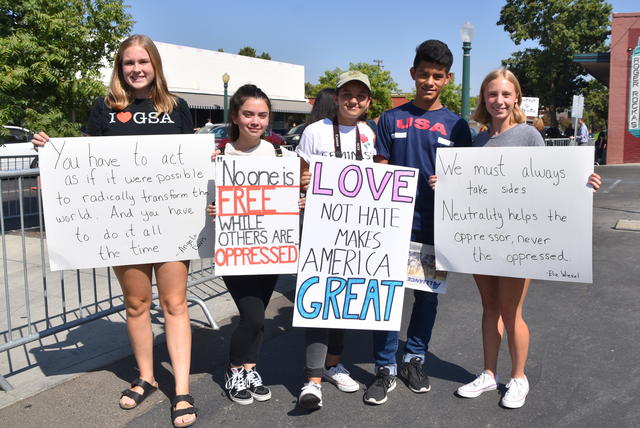 I ♥ GSA
You have to act
as if it were possible
to radically transform the
world. And you have
to do it all
the time
No one is
FREE
WHILE
OTHERS ARE
OPPRESSED
LOVE
NOT HATE
MAKES
AMERICA
GREAT
USA
We must always
take sides
Neutrality helps the
oppressor, never
the oppressed.
-Elie Wiesel